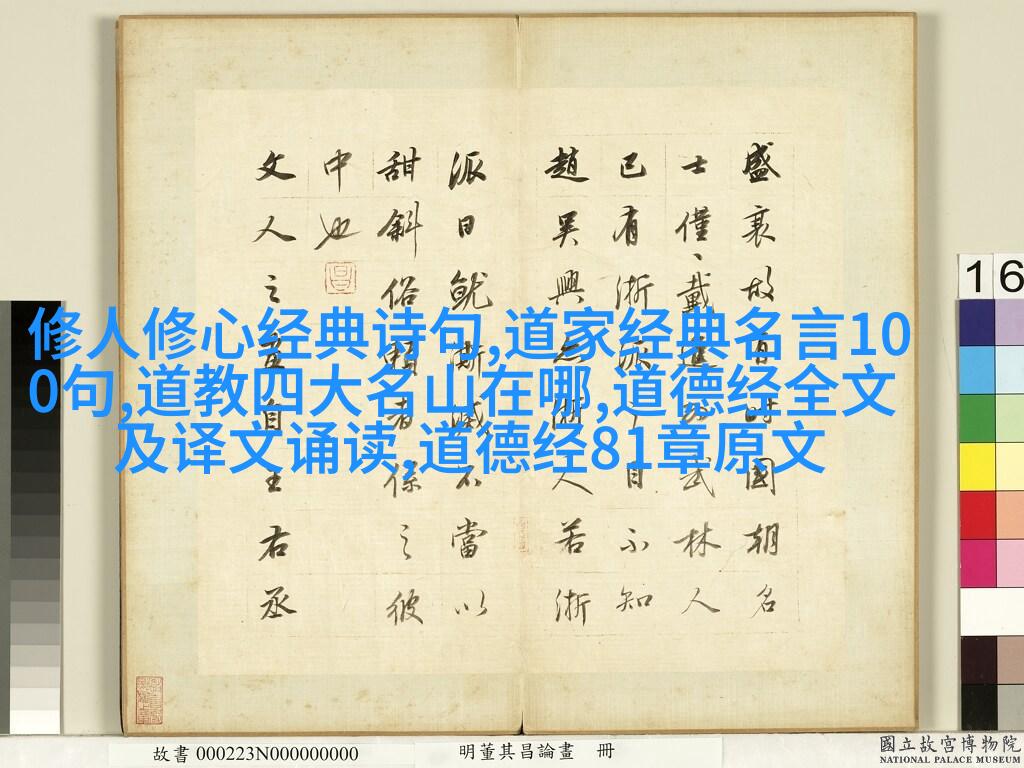 修人修心经典诗句,道家经典名言10
0句,道教四大名山在哪,道德经全文
及译文诵读,道德经81章原文
盛衰故有時國朝名
士僅戴進為武林人
已有浙派之目不知
趙吳興亦浙人若浙
派日就澌滅不當以
甜斜俗賴者係之彼
中也
文人之畫自王右丞
16
故書 000223N000000000
明董其昌論畫 冊
國立故宮博物院
NATIONAL PALACE MUSEUM